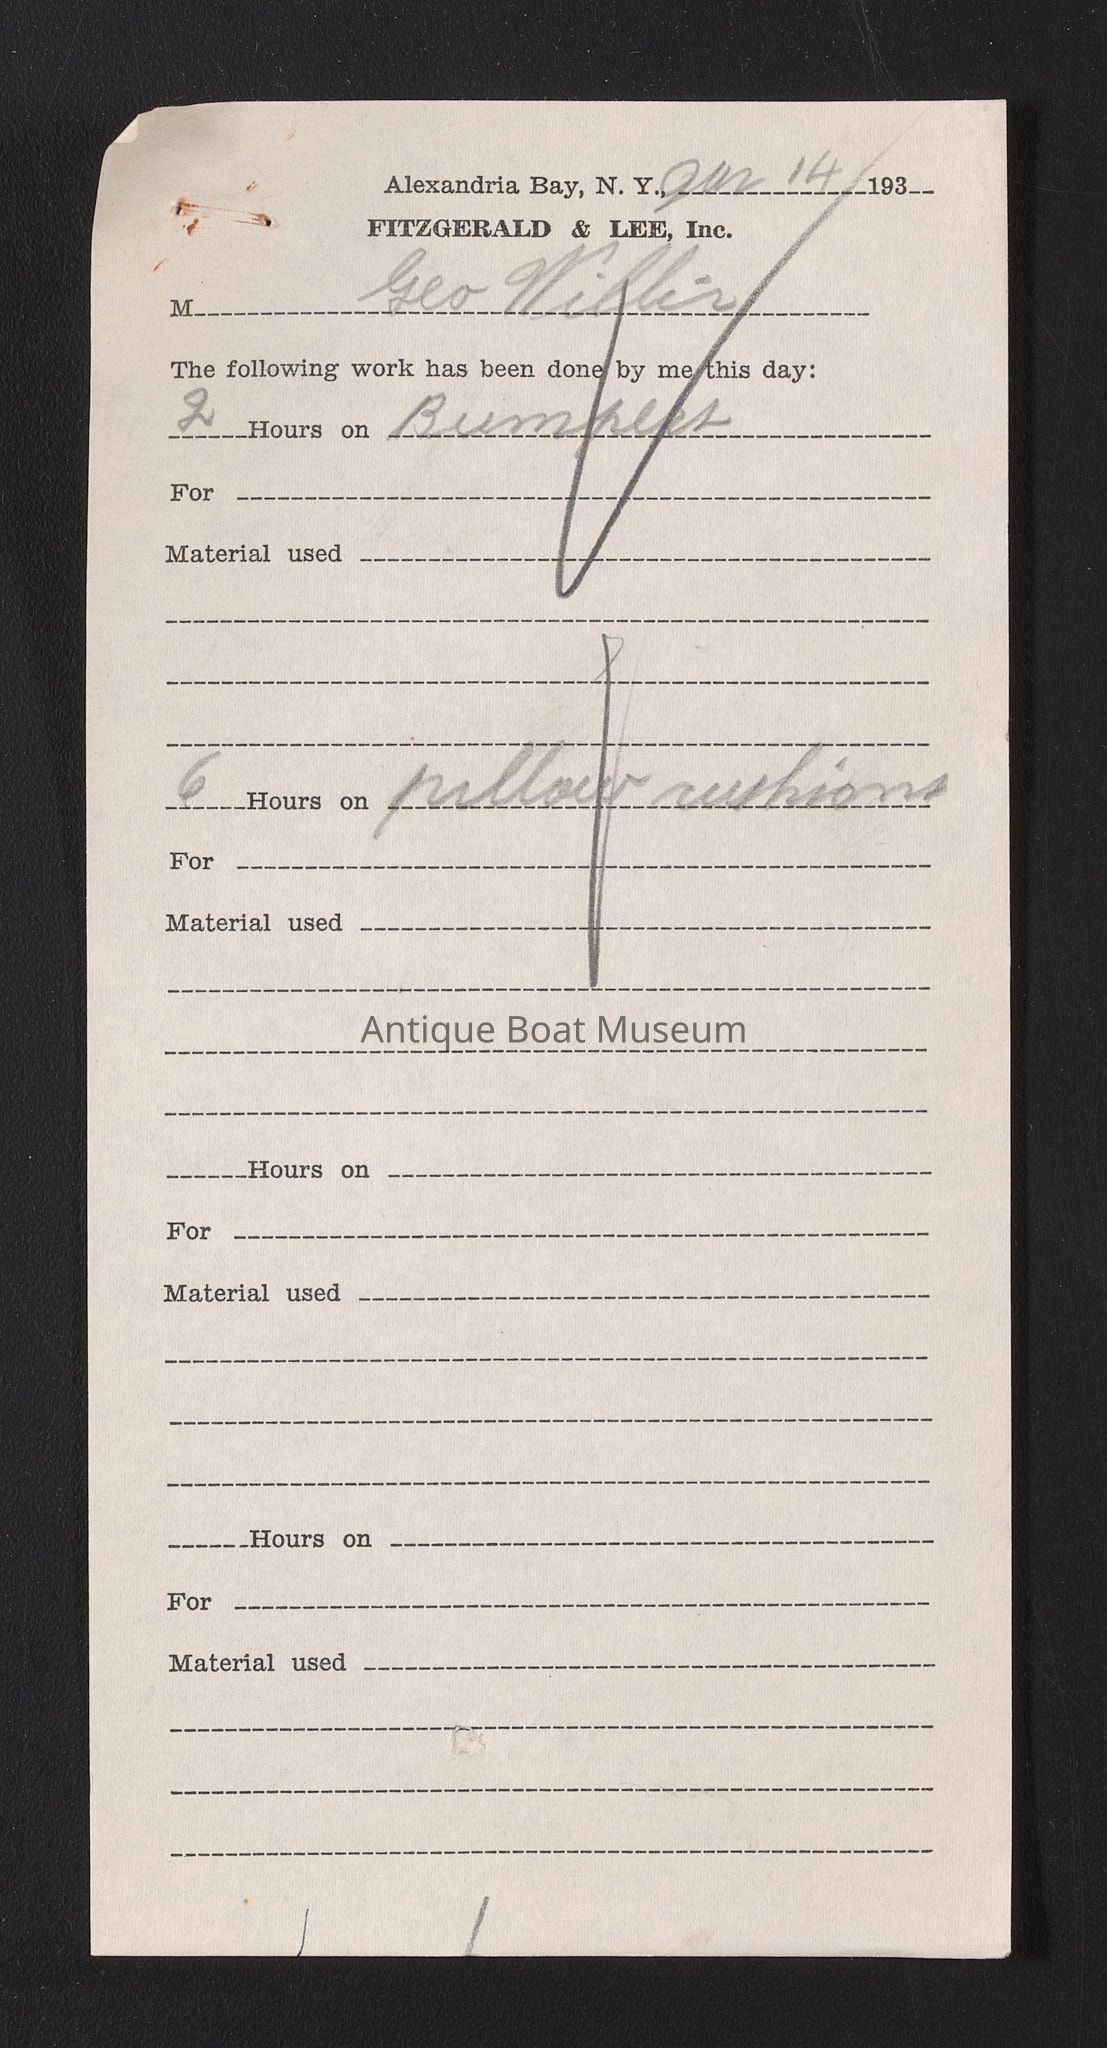 Alexandria Bay, N. Y., 14 193
FITZGERALD & LEE, Inc.
M Geo
The following work has been done by me this day:
2 Hours on
For
Material used
6 Hours on pillow cushions
For
Material used
Antique Boat Museum
Hours on
For
Material used
Hours on
For
Material used